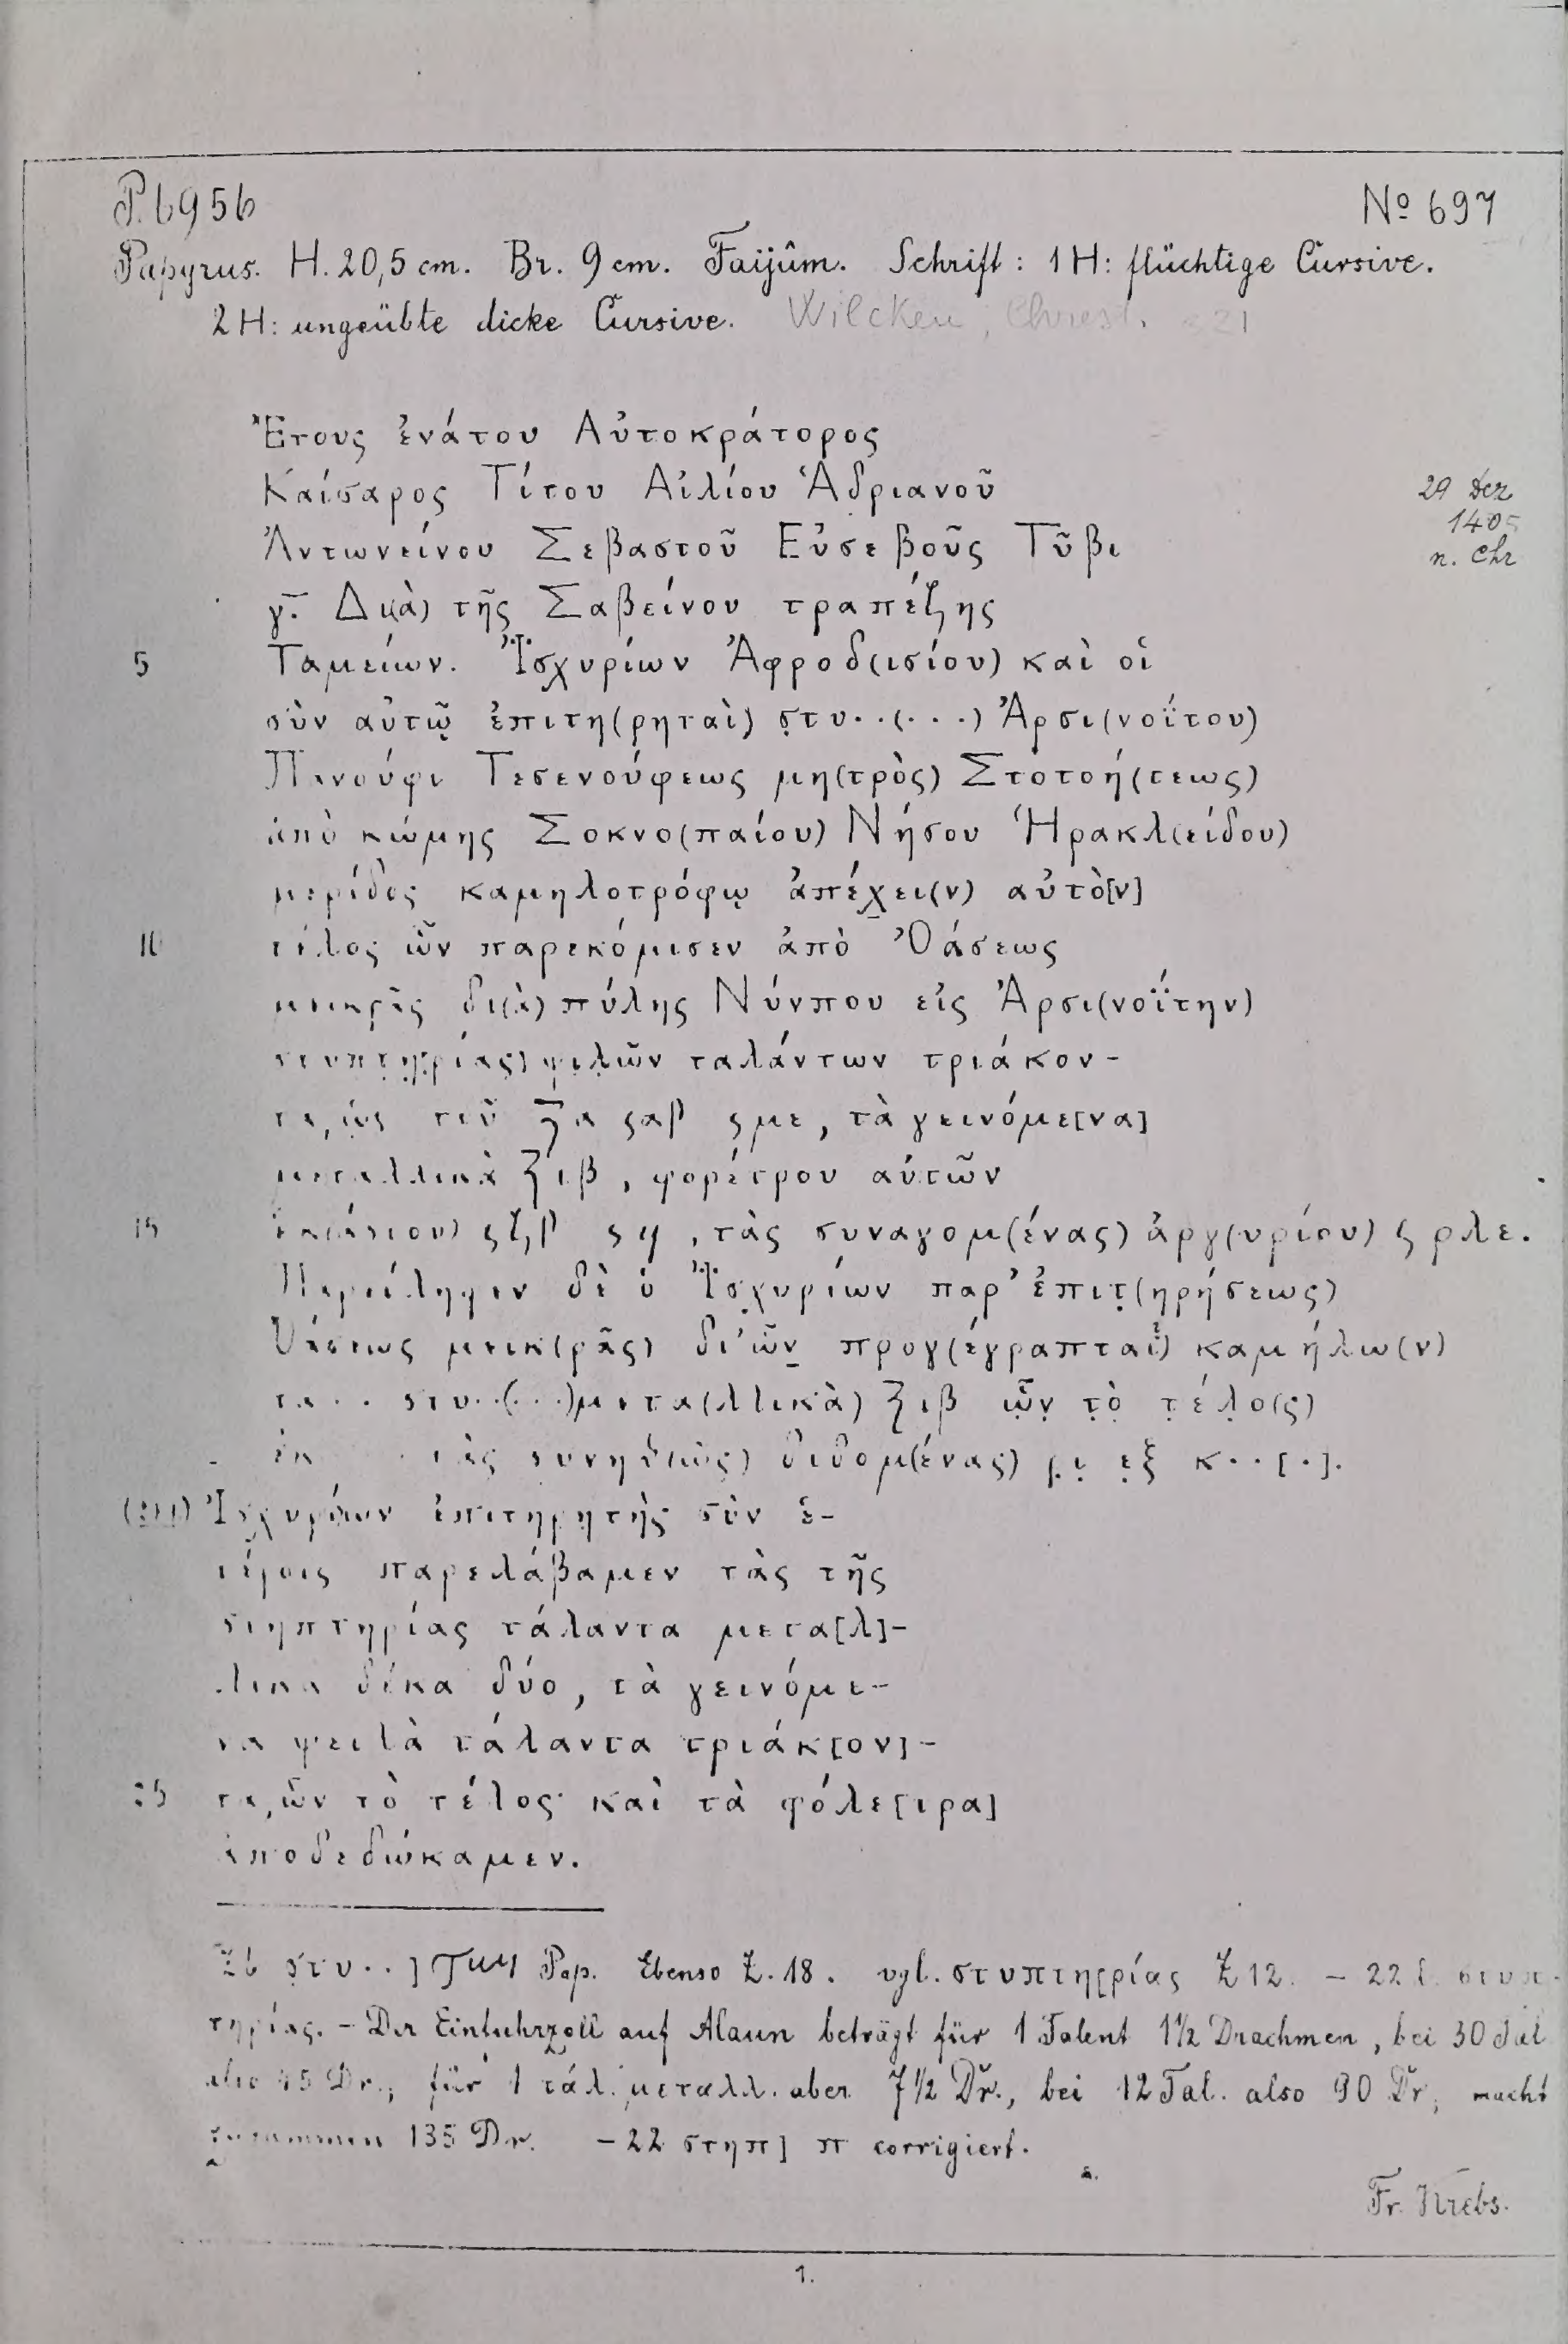 P. 6956
№ 697
Papyrus. H. 20,5 cm. Br. 9 cm. Faijûm. Schrift: 1 H: flüchtige Cursive.
2 H: ungeübte dicke Cursive. Wilcken, Chrest. 21
Ἔτους ἐνάτου Αὐτοκράτορος
Καίσαρος Τίτου Αἰλίου Ἁδριανοῦ
29 Dez
Ἀντωνείνου Σεβαστοῦ Εὐσεβοῦς Τῦβι
n. Chr
γ̅. Δι(ὰ) τῆς Σαβείνου τραπέζης
5 Ταμείων. Ἰσχυρίων Ἀφροδ(ισίου) καὶ οἱ
σὺν αὐτῷ ἐπιτη(ρηταὶ) σ̣τυ··(···) Ἀρσι(νοΐτου)
Πανούφι Τεσενούφεως μη(τρὸς) Στοτοή(τεως)
ἀπὸ κώμης Σοκνο(παίου) Νήσου Ἡρακλ(είδου)
μερίδος καμηλοτρόφῳ ἀπέχει(ν) αὐτὸ[ν]
10 τέλος ὧν παρεκόμισεν ἀπὸ Ὀάσεως
μεικρᾶς δι(ὰ) πύλης Νύνπου εἰς Ἀρσι(νοΐτην)
στυπτη(ρίας) ψιλῶν ταλάντων τριάκον-
τα, ὡς τοῦ α ϛαβ ϛμε, τὰ γεινόμε[να]
μεταλλικὰ ιβ, φορέτρου αὐτῶν
15 ἑκ(άστου) ϛζβ ϛϥ, τὰς συναγομ(ένας) ἀργ(υρίου) ϛ ρλε.
Παρείληφεν δὲ ὁ Ἰσχυρίων παρ’ ἐπιτ̣(ηρήσεως)
Ὀάσεως μεικ(ρᾶς) δι’ ὧν προγ(έγραπται) καμήλω(ν)
τα·· στυ··(···) μετα(λλικὰ) ιβ ὧ̣ν̣ τ̣ὸ̣ τ̣έ̣λ̣ο(ς)
τὰς συνήθ(ως) διδομ(ένας) ε̣ξ κ··[·].
(2H) Ἰσχυρίων ἐπιτηρητὴς σὺν ἑ-
τέροις παρελάβαμεν τὰς τῆς
στηπτηρίας τάλαντα μετα[λ]-
λικὰ δέκα δύο, τὰ γεινόμε-
να ψειλὰ τάλαντα τριάκ[ον]-
25 τα, ὧν τὸ τέλος καὶ τὰ φόλε[ιρα]
ἀποδεδώκαμεν.
Z 6 σ̣τυ··] Pap. Ebenso Z. 18. vgl. στυπτη[ρίας Z 12. – 22 l. στυπ-
τηρίας. – Der Einfuhrzoll auf Alaun beträgt für 1 Talent 1½ Drachmen, bei 30 Tal
also 45 Dr., für 1 τάλ. μεταλλ. aber 7½ Dr., bei 12 Tal. also 90 Dr, macht
zusammen 135 Dr. – 22 στηπ] π corrigiert.
Fr. Krebs.
1.